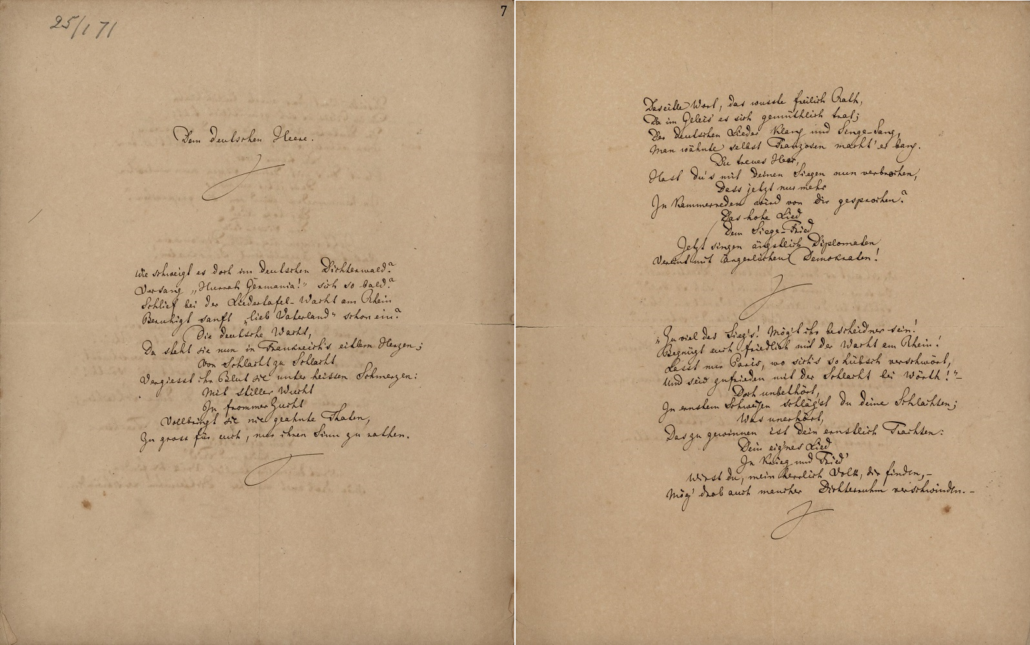 25/1 71
7
Dem deutschen Heere.
Was schweigt es doch im deutschen Dichterwald?
Versang „Hurrah Germania!“ sich so bald?
Schlief bei der Liedertafel-Wacht am Rhein
Beruhigt sanft „lieb Vaterland“ schon ein?
Die deutsche Wacht,
Da steht sie nun in Frankreich's eitlem Herzen;
von Schlacht zu Schlacht
Vergiesst ihr Blut sie unter heissen Schmerzen:
mit stiller Wucht
In frommer Zucht
vollbringt sie nie geahnte Thaten,
Zu gross für euch, nur ihren Sinn zu rathen.
Das eitle Wort, das wusste freilich Rath,
Da im Geleis' es sich gemüthlich trat;
Der deutschen Lieder Klang und Singe-Sang,
Man wähnte selbst Franzosen macht' es bang.
Du treues Heer,
Hast du's mit deinen Siegen nun verbrochen,
Dass jetzt nur mehr
In Kammerreden wird von dir gesprochen?
Das hohe Lied
Dem Siege-Fried
Jetzt singen ängstlich Diplomaten,
Vereint mit ärgerlichen Demokraten!
„Zu viel des Sieg's! Mög't ihr bescheidner sein!
Begnügt euch friedlich mit der Wacht am Rhein!
Lasst uns Paris, wo sich's so hübsch verschwört,
und seid zufrieden mit der Schlacht bei Wörth!“ –
Doch unbethört,
In ernstem Schweigen schlägst du deine Schlachten;
Was unerhört,
Das zu gewinnen ist dein ernstlich Trachten:
Dein eig'nes Lied
In Krieg und Fried'
Wirst du, mein herrlich Volk, dir finden, –
Mög' drob auch mancher Dichterruhm verschwinden. –